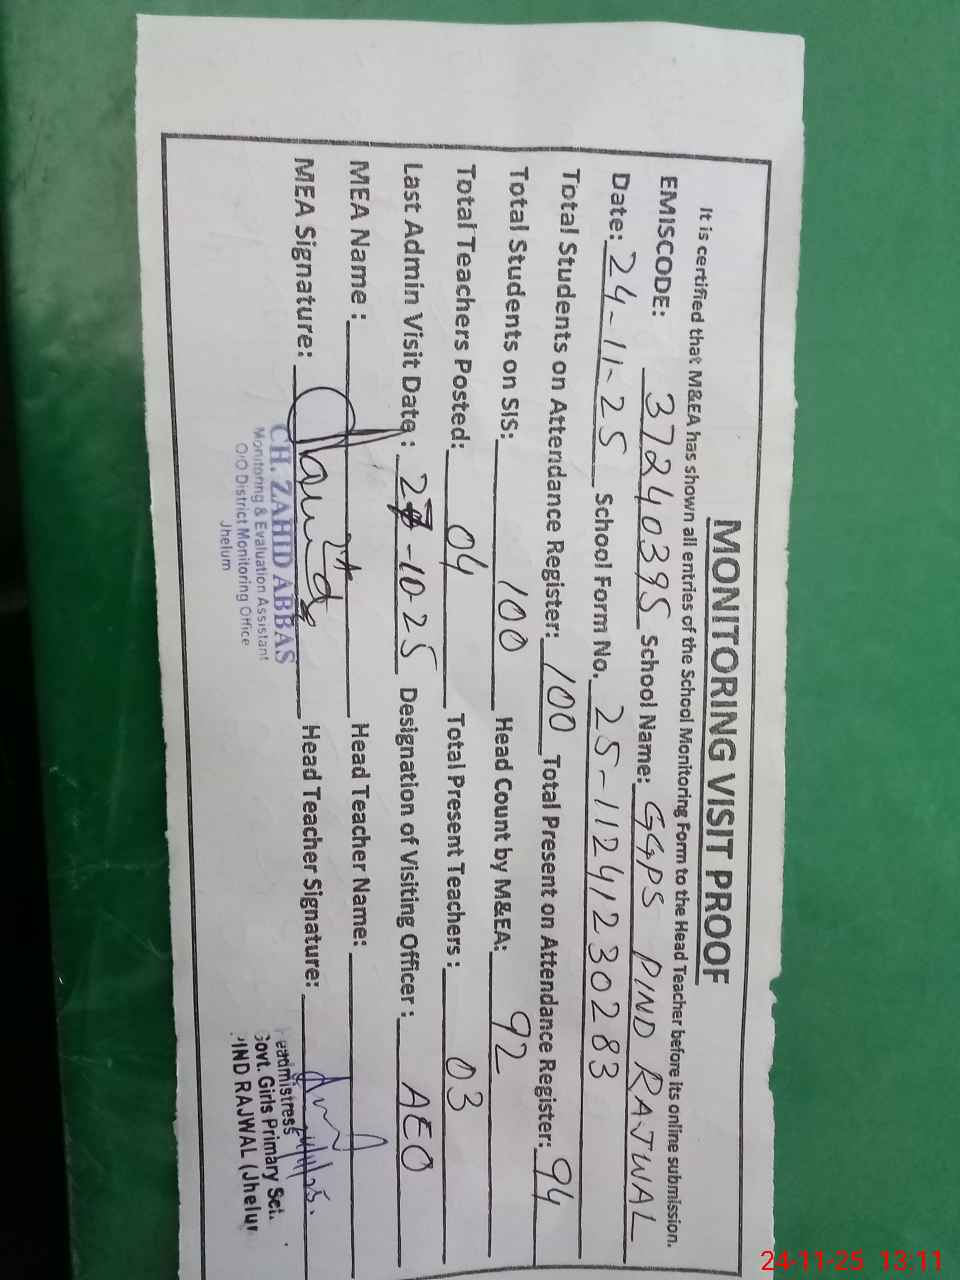 MONITORING VISIT PROOF
It is certified that M&EA has shown all entries of the School Monitoring Form to the Head Teacher before its online submission.
EMISCODE: 37240395 School Name: GGPS PIND RAJWAL
Date: 24-11-25 School Form No. 25-1124123 0283
Total Students on Attendance Register: 100 Total Present on Attendance Register: 94
Total Students on SIS: 100 Head Count by M&EA: 92
Total Teachers Posted: 04 Total Present Teachers: 03
Last Admin Visit Date: 27-10-25 Designation of Visiting Officer: AEO
MEA Name: Head Teacher Name:
MEA Signature: Head Teacher Signature:
CH. ZAHID ABBAS
Monitoring & Evaluation Assistant
O/O District Monitoring Office
Jhelum
eadmistress
ovt. Girls Primary Scł.
IND RAJWAL (Jhelu
24-11-25 13:11